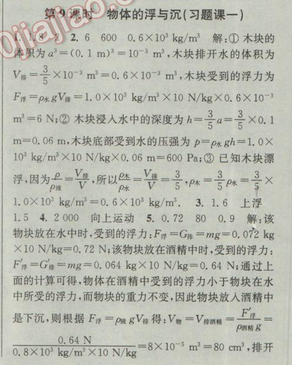 第9课时 物体的浮与沉(习题课一)
1.8 2.6 600 0.6×10³ kg/m³ 解:①木块的
体积为 a³=(0.1 m)³=10⁻³ m³,木块排开水的体积为
V排=3/5×10⁻³ m³=0.6×10⁻³ m³,木块受到的浮力为
F浮=ρ水gV排=1.0×10³ kg/m³×10 N/kg×0.6×10⁻³
m³=6 N;②木块浸入水中的深度为 h=3/5a=3/5×0.1
m=0.06 m,木块底部受到水的压强为 p=ρ水gh=1.0×
10³ kg/m³×10 N/kg×0.06 m=600 Pa;③已知木块漂
浮,因为ρ木/ρ液=V排/V,所以ρ木/ρ水=V排/V=3/5,ρ木=3/5ρ水=3/5×
1.0×10³ kg/m³=0.6×10³ kg/m³. 3.1.6 上浮
1.5 4.2 000 向上运动 5.0.72 80 0.9 解:该
物块放在水中时,受到的浮力:F浮=G排=mg=0.072 kg
×10 N/kg=0.72 N;该物块放在酒精中时,受到的浮力:
F′浮=G′排=m′g=0.064 kg×10 N/kg=0.64 N;通过上
面的计算可得,物体在酒精中受到的浮力小于物块在水
中所受的浮力,而物块的重力不变,因此物块放入酒精中
是下沉,则根据 F浮=ρ液gV排得:V物=V排酒精=F′浮/ρ酒精g=
0.64 N/0.8×10³ kg/m³×10 N/kg=8×10⁻⁵ m³=80 cm³,排开